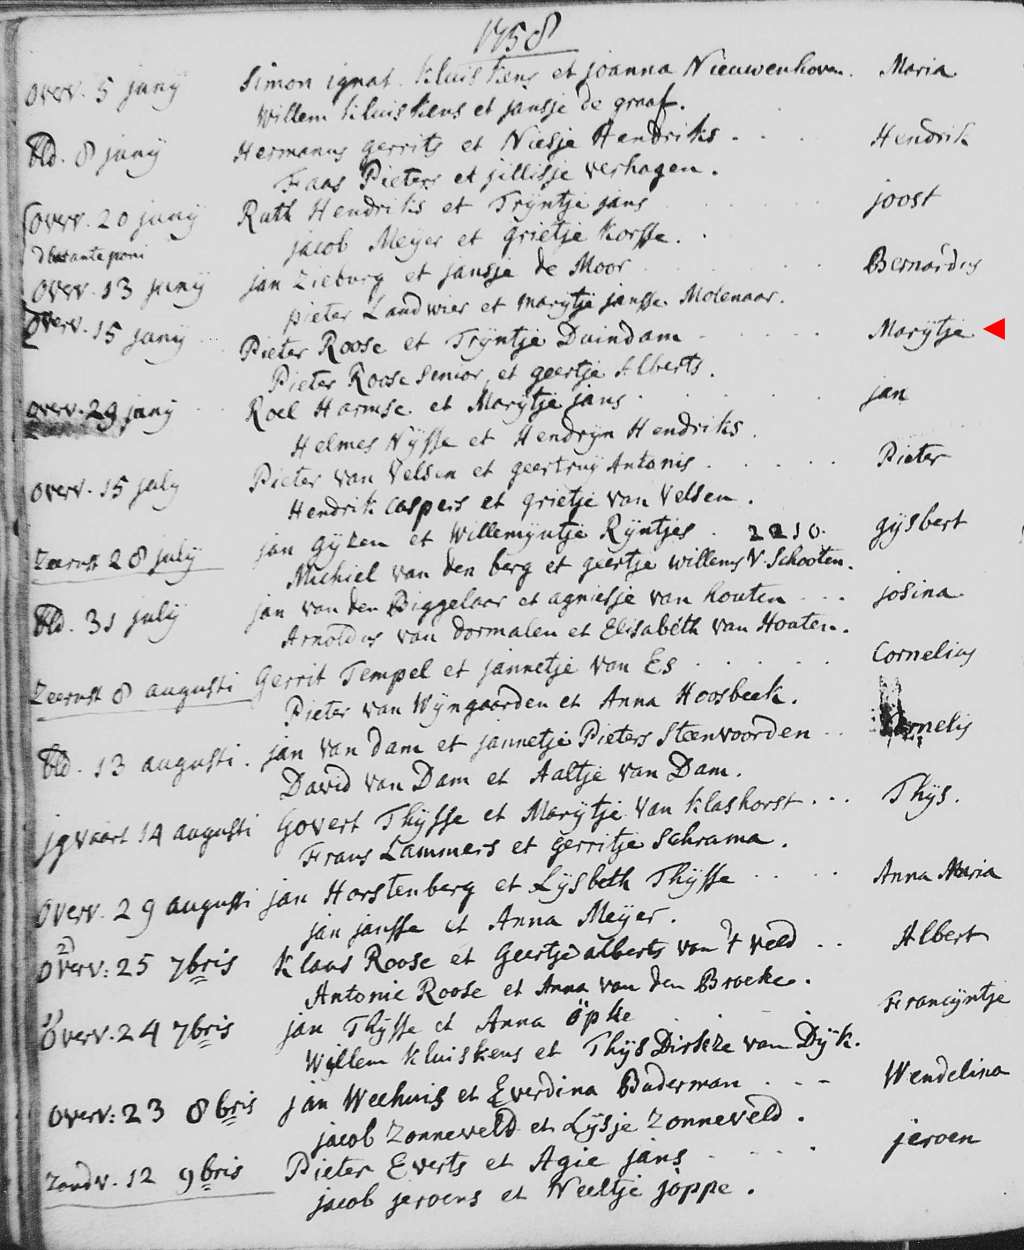 1758
Overv. 5 junij Simon ignat. Kluiskens et joanna Nieuwenhoven. Maria
Willem Kluiskens et jansje de graaf.
Bld. 8 junij Hermanus gerrits et Niesje Hendriks . . . Hendrik
Faas Pieters et jillisje verhagen.
Overv. 20 junij Ruth Hendriks et Trijntje jans joost
jacob Meijer et grietje Korsse.
Overv. 13 junij jan Zieburg et jansje de Moor Bernardus
pieter Landwier et marijtje jansse Molenaar.
Overv. 15 junij Pieter Roose et Trijntje Duindam Marijtje
Pieter Roose Senior, et geertje Alberts.
Overv. 29 junij Roel Harmse et Marijtje jans jan
Helmes Nijsse et Hendrijn Hendriks.
Overv. 15 julij Pieter van Velsen et geertruij Antonis Pieter
Hendrik Caspers et grietje van Velsen.
28 julij jan gijzen et Willemijntje Rijntjes . 2210. gijsbert
Michiel van den berg et geertje willems V. Schooten.
Bld. 31 julij jan van den Biggelaar et agniesje van houten . . . josina
Arnoldus van dormalen et Elisabéth van Houten.
8 augusti Gerrit Tempel et jannetje van Es Cornelius
Pieter van Wijngaarden et Anna Hoosbeek.
Bld. 13 augusti. jan van dam et jannetje Pieters Steenvoorden . . Cornelis
David van Dam et Aaltje van Dam.
jgvaart 14 augusti Govert Thijsse et Marijtje van Klashorst . . . Thijs.
Frans Lammers et gerritje Schrama.
Overv. 29 augusti jan Horstenberg et Lijsbeth Thijsse Anna Maria
jan jansse et Anna Meijer.
2) Overv: 25 7bris Klaas Roose et Geertje alberts van 't veld . . Albert
Antonie Roose et Anna van den Broeke.
1) Overv. 24 7bris jan Thijsse et Anna öpke Francijntje
Willem Kluiskens et Thijs Dirkze van Dijk.
Overv: 23 8bris jan Weehuis et Everdina Buderman . . . Wendelina
jacob Zonneveld et Lijsje Zonneveld.
Zandv. 12 9bris Pieter Everts et Agie jans jeroen
jacob jeroens et Neeltje joppe.